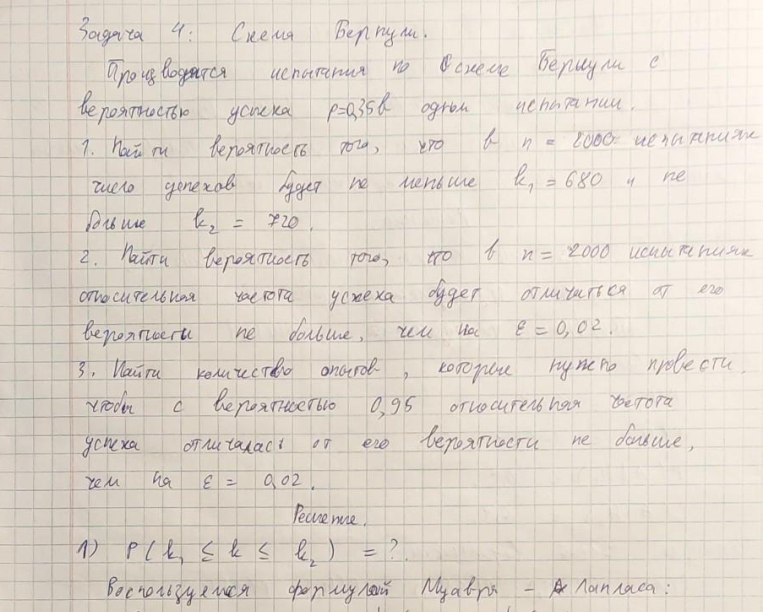 Задача 4: Схема Бернули.
Производятся испытания по схеме Бернули с
вероятностью успеха p=0,35 в одном испытании.
1. Найти вероятность того, что в n = 2000 испытаниях
число успехов будет не меньше k₁ = 680 и не
больше k₂ = 720.
2. Найти вероятность того, что в n = 2000 испытаниях
относительная частота успеха будет отличаться от его
вероятности не больше, чем на ε = 0,02.
3. Найти количество опытов, которые нужно провести,
чтобы с вероятностью 0,95 относительная частота
успеха отличалась от его вероятности не больше,
чем на ε = 0,02.
Решение.
1) P(k₁ ≤ k ≤ k₂) = ?
Воспользуемся формулой Муавра - Лапласа: